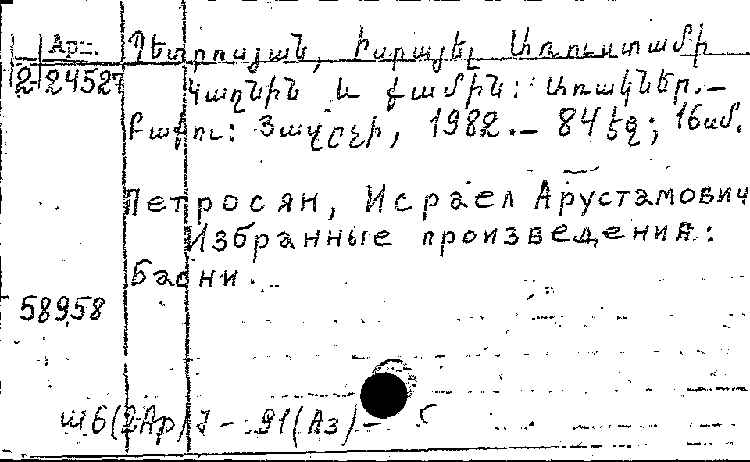 Арм. Պետրոսյան, Իսրայել Առուստամի
2-24527 Կաղնին և քամին: Առակներ.—
Բաքու: Յազըչի, 1982.— 84 էջ; 16սմ.
Петросян, Исраел Арустамович
Избранные произведения:
Басни.
58958
ш6(2Ар)7 - 91(Аз) -